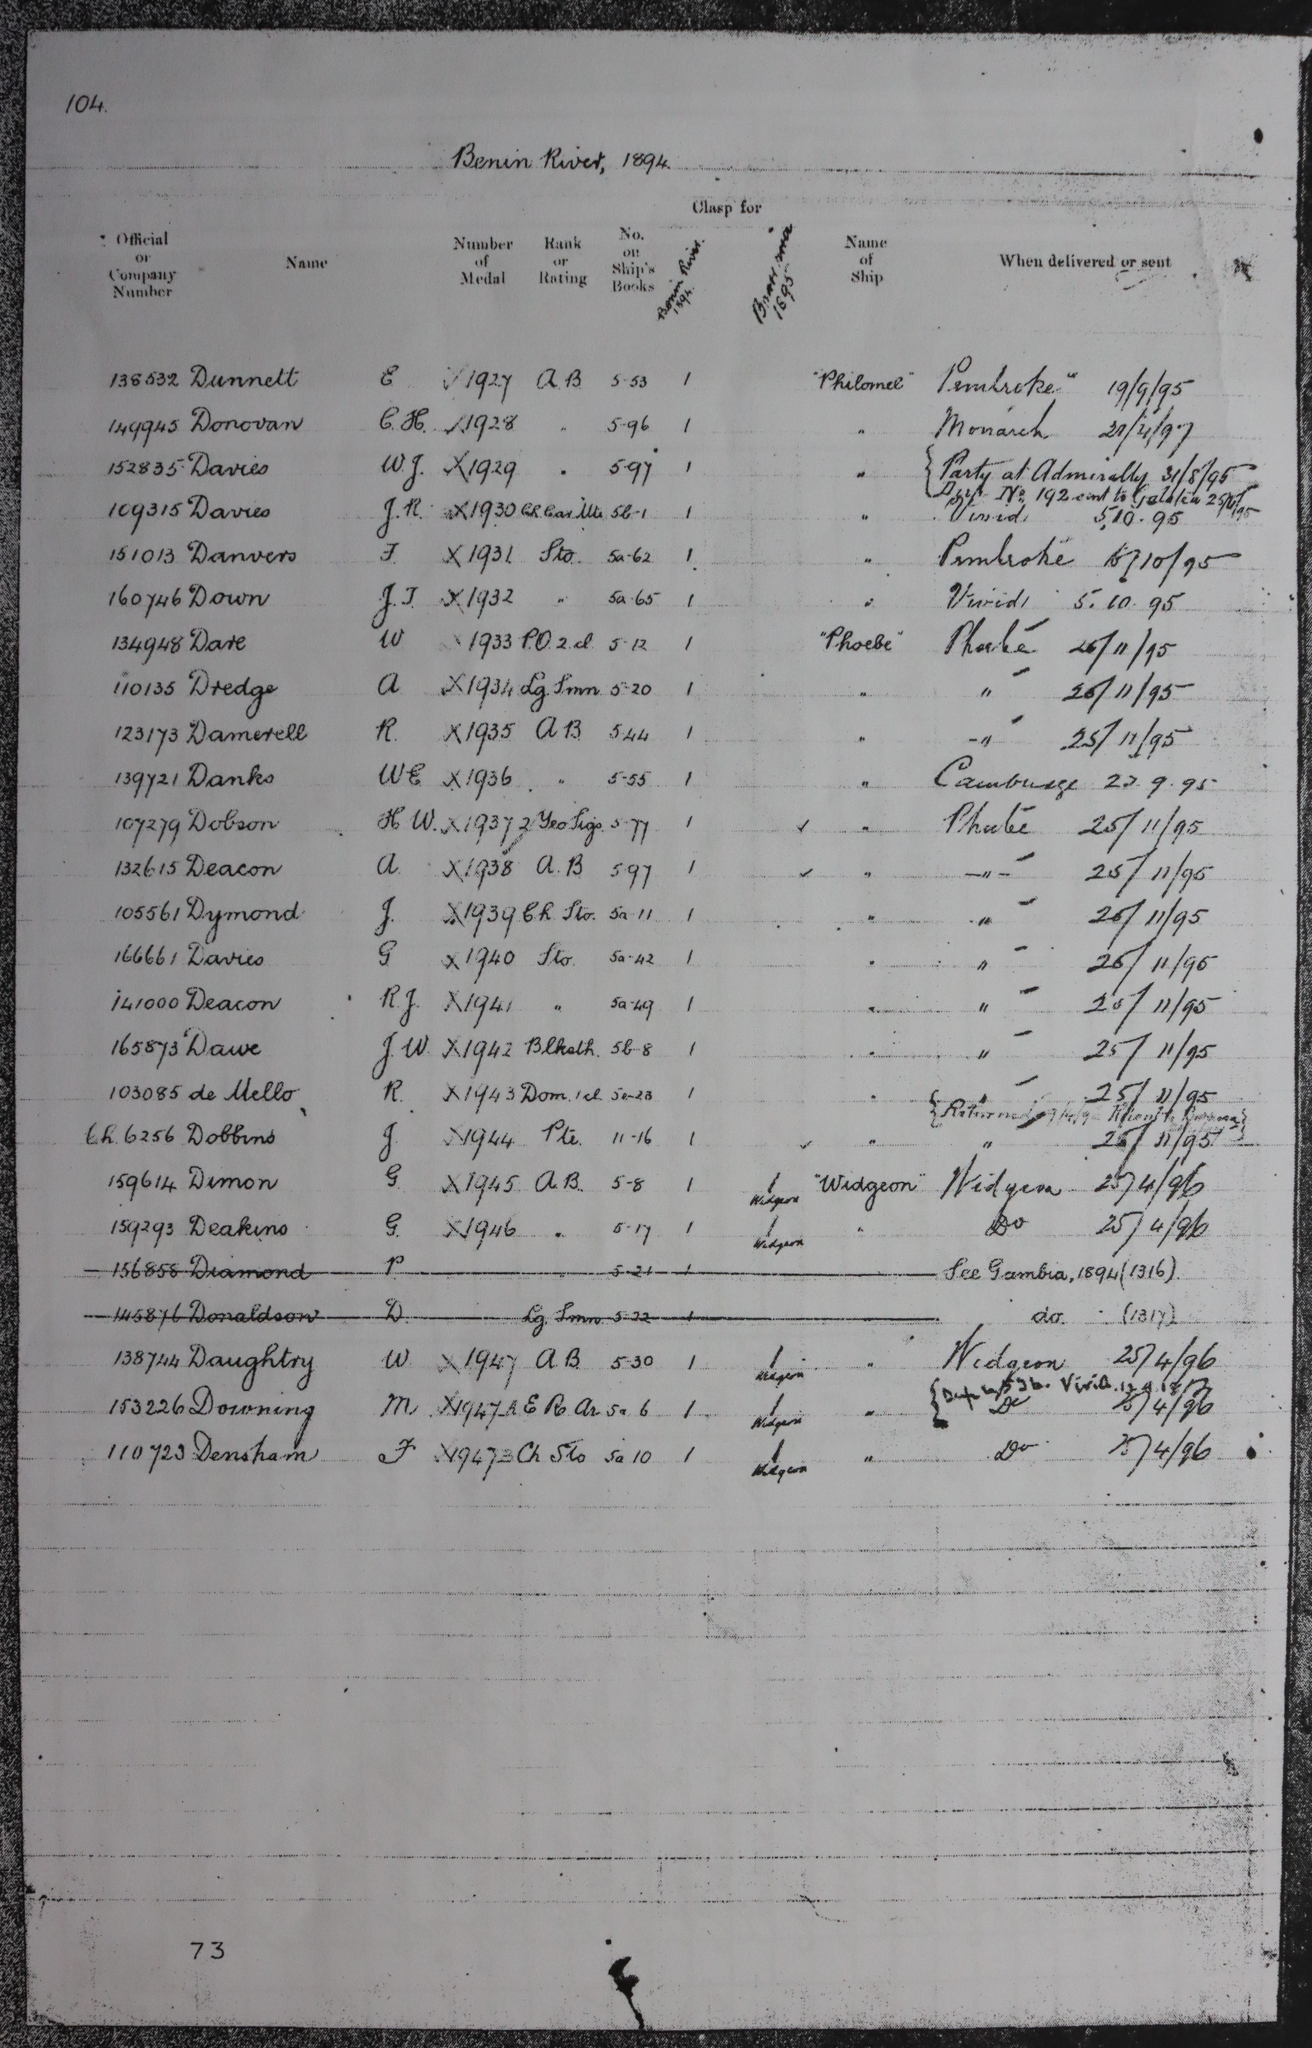 104.
Benin River, 1894
Clasp for
Official or Company Number Name Number of Medal Rank or Rating No. on Ship's Books Benin River. 1894. 1895 Name of Ship When delivered or sent
138532 Dunnett E 1927 A.B 5-53 1 "Philomel" Pembroke" 19/9/95
149945 Donovan C.H. 1928 " 5-96 1 " Monarch
152835 Davies W.J. X1929 " 5-97 1 " { Party at Admiralty 31/8/95
No 192 sent to Galatea
109315 Davies J.R. X1930 5b-1 1 " Vivid 5.10.95
151013 Danvers F. X1931 Sto. 5a-62 1 " Pembroke 15/10/95
160746 Down J.T X1932 " 5a-65 1 " Vivid 5.10.95
134948 Dare W X1933 P.O. 2 cl 5-12 1 "Phoebe" Phoebe 26/11/95
110135 Dredge A X1934 Lg Smn 5-20 1 " " 26/11/95
123173 Damerell R. X1935 A.B 5-44 1 " -"- 25/11/95
139721 Danks W E X1936 " 5-55 1 " Cambridge 9.95
107279 Dobson H W. X1937 2 Yeo Sigs 5-77 1 ✓ " Phoebe 25/11/95
132615 Deacon A. X1938 A.B 5-97 1 ✓ " -"- 25/11/95
105561 Dymond J. X1939 Ch Sto. 5a-11 1 " " 26/11/95
166661 Davies G X1940 Sto 5a-42 1 " " 26/11/95
141000 Deacon R.J. X1941 " 5a-49 1 " " 25/11/95
165873 Dawe J.W. X1942 Blksth. 5b-8 1 " " 25/11/95
103085 de Mello R. X1943 Dom. 1 cl 1 " " 25/11/95
{ Returned }
Ch. 6256 Dobbins J X1944 Pte. 11-16 1 ✓ " " 26/11/95
159614 Dimon G X1945 A.B. 5-8 1 1 Widgeon "Widgeon" Widgeon 25/4/96
159293 Deakins G. X1946 " 5-17 1 1 Widgeon " Do 25/4/96
156858 Diamond P " 5-21 1 See Gambia, 1894 (1316).
145876 Donaldson D. Lg Smn 5-22 1 do. (1317)
138744 Daughtry W X1947 A.B. 5-30 1 1 Widgeon " Widgeon 25/4/96
{ Vivid
153226 Downing M X1947A E R Ar 5a 6 1 1 Widgeon " Do 25/4/96
110723 Densham F Ch Sto 5a 10 1 1 Widgeon " Do 25/4/96
73